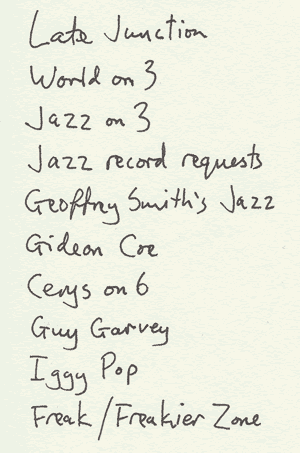 Late Junction
World on 3
Jazz on 3
Jazz record requests
Geoffrey Smith's Jazz
Gideon Coe
Cerys on 6
Guy Garvey
Iggy Pop
Freak/Freakier Zone